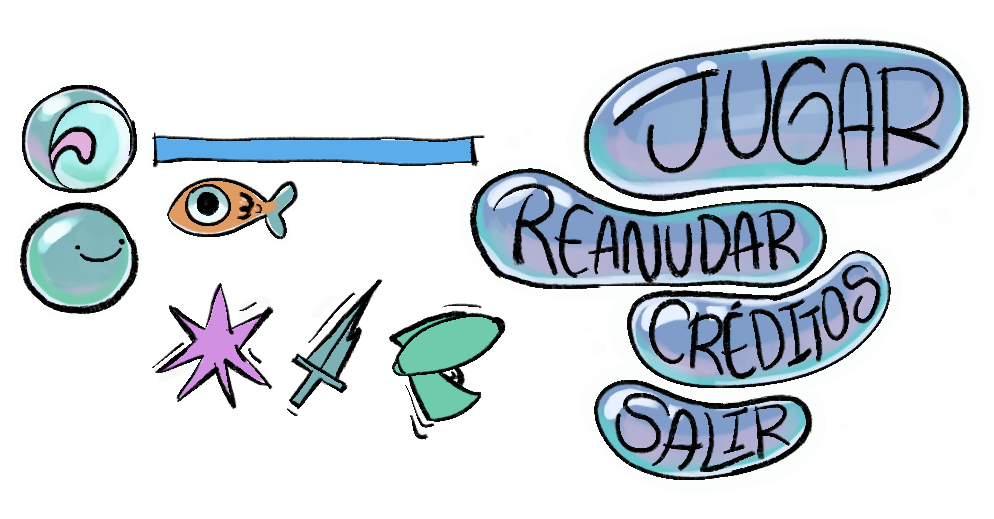 JUGAR
REANUDAR
CRÉDITOS
SALIR